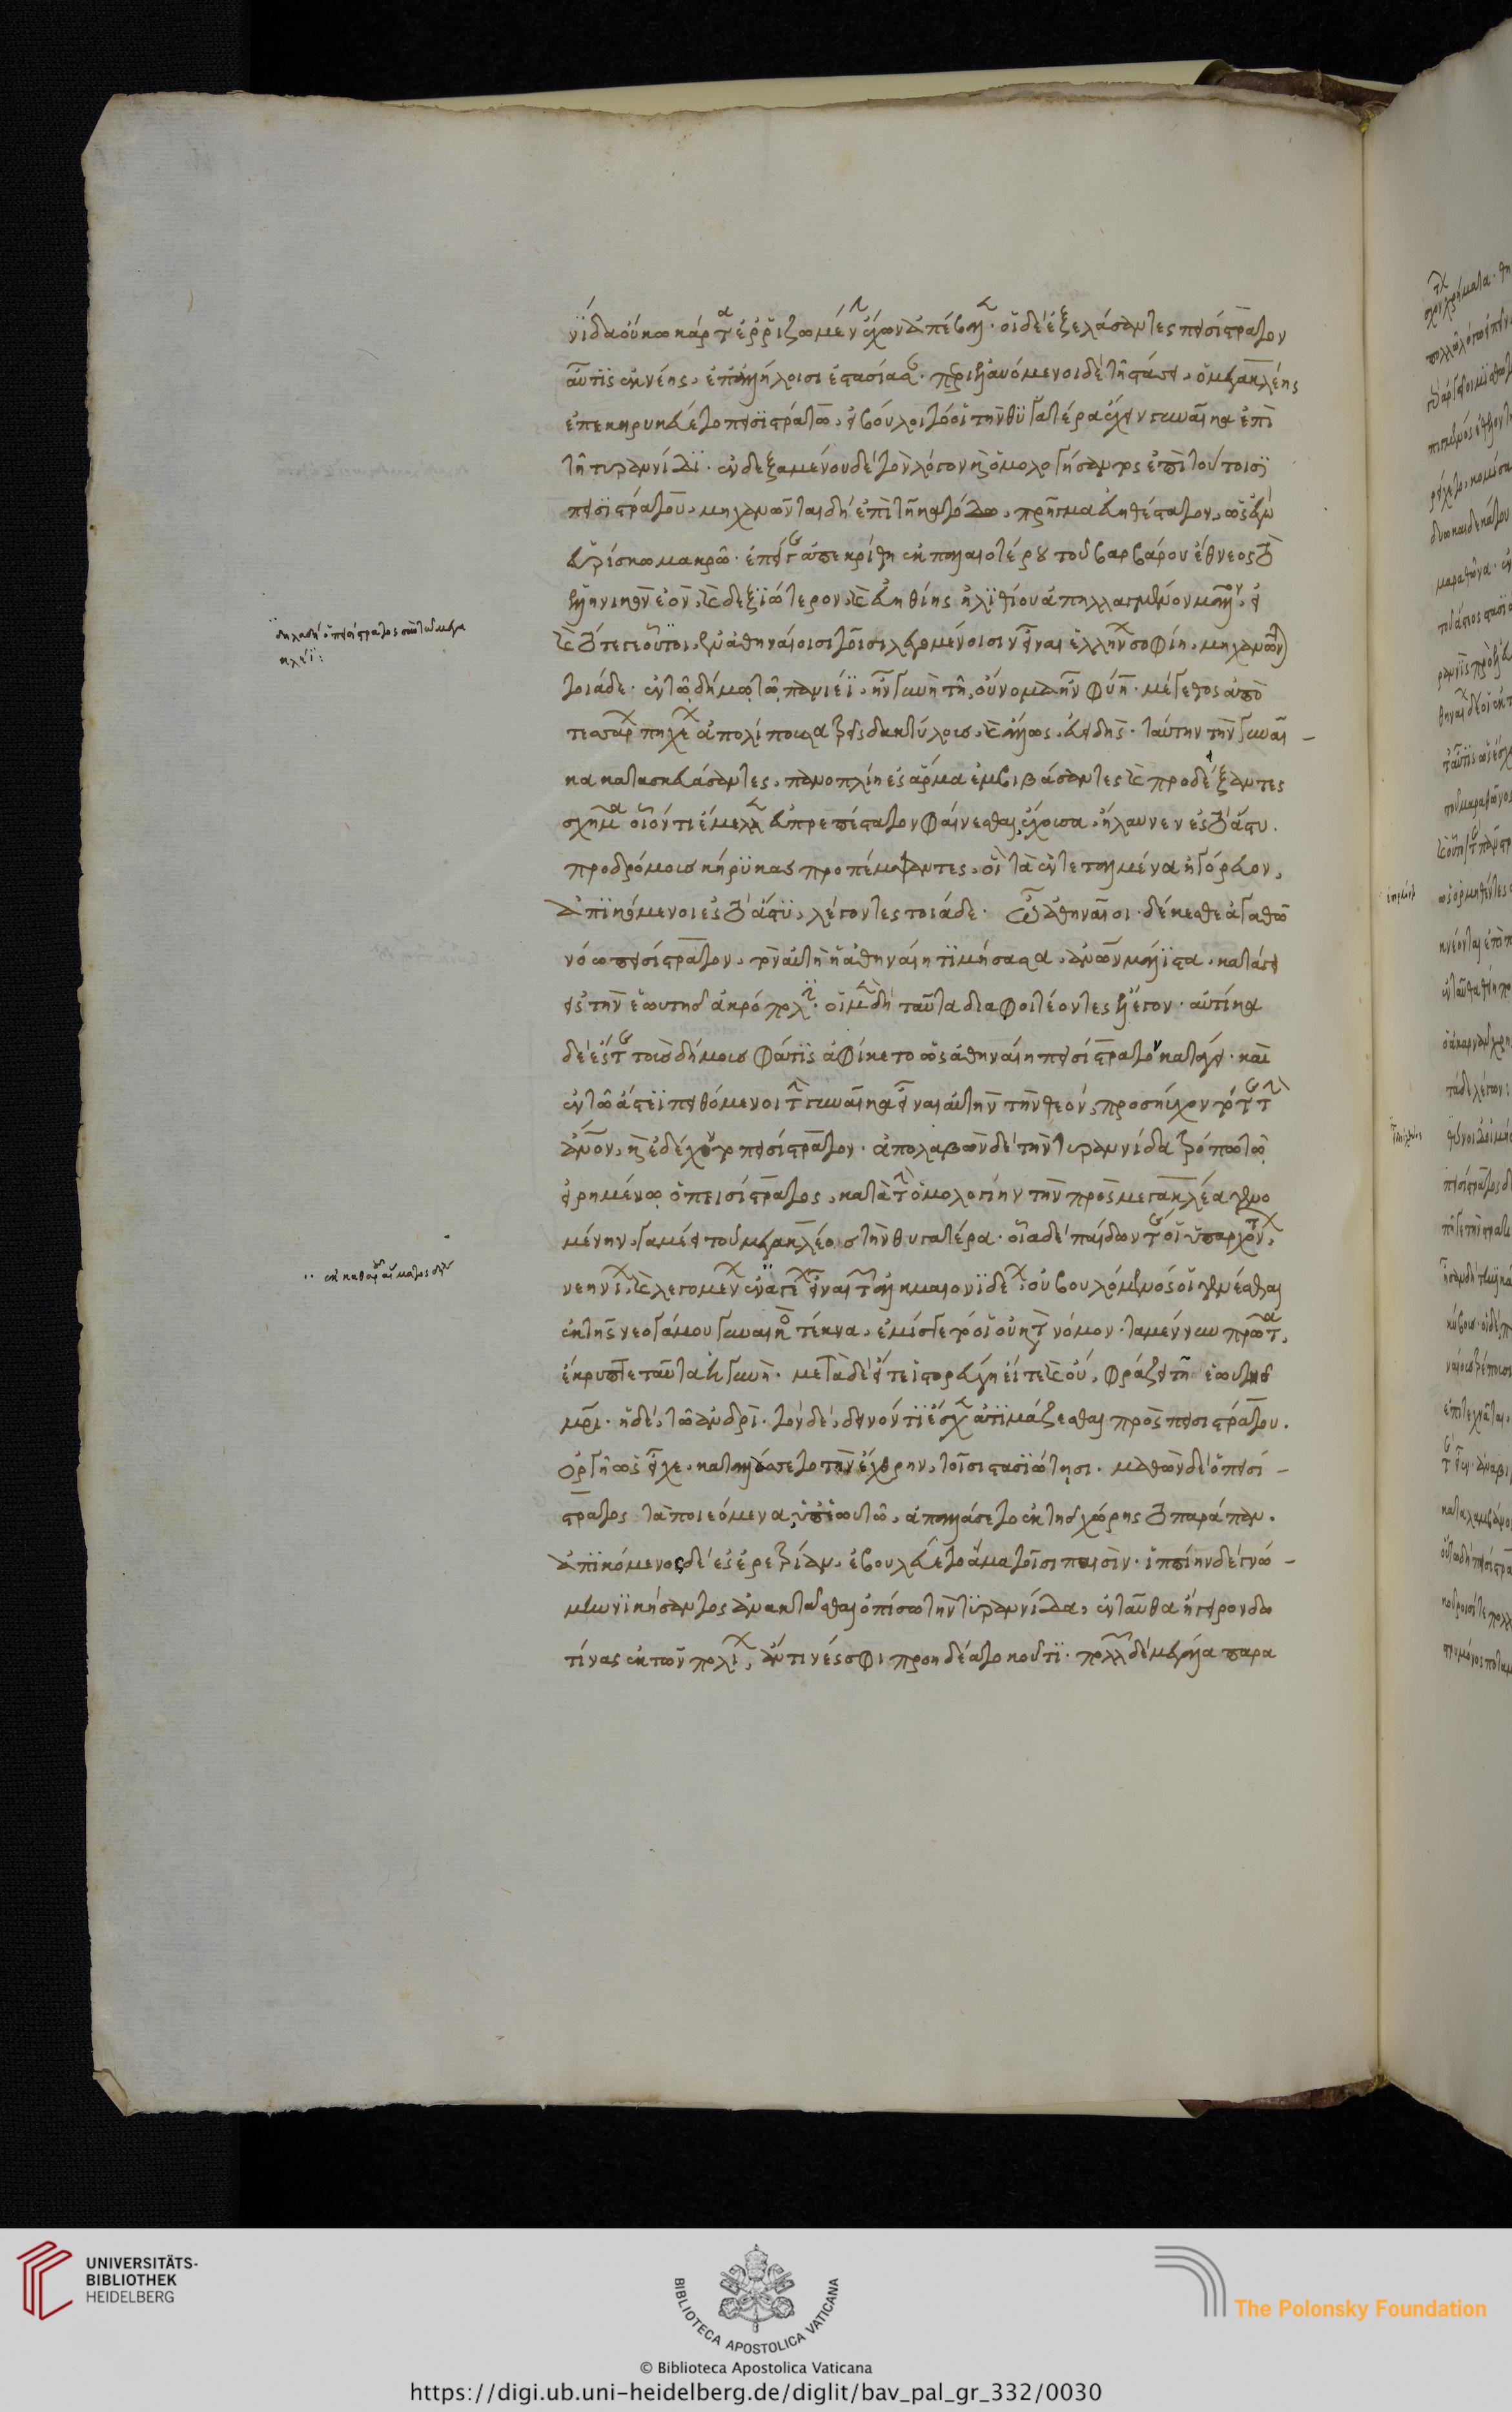 νίδα οὔκω κάρτα ἐῤῥιζωμένην ἔχων ἀπέβαλε· οἱ δὲ ἐξελάσαντες πεισίστρατον
αὖτις ἐκ νέης, ἐπ' ἀλλήλοισι ἐστασίασαν· περιελαυνόμενοι δὲ τῆ στάσει, ὁ μεγακλέης
ἐπεκηρυκεύετο πεισιστράτω, εἰ βούλοιτό οἱ τὴν θυγατέρα ἔχειν γυναῖκα ἐπὶ
τῆ τυραννίδι· ἐνδεξαμένου δὲ τὸν λόγον καὶ ὁμολογήσαντος ἐπὶ τούτοισι
πεισιστράτου, μηχανῶνται δὴ ἐπὶ τῆ κατόδω, πρῆγμα εὐηθέστατον, ὡς ἐγὼ
εὑρίσκω μακρῶ· ἐπεί γε ἀπεκρίθη ἐκ παλαιοτέρου τοῦ βαρβάρου ἔθνεος τὸ
ἑλληνικὸν ἐὸν, καὶ δεξιώτερον, καὶ εὐηθίης ἠλιθίου ἀπηλλαγμένον μᾶλλον, εἰ
καὶ τότε γε οὗτοι, ἐν ἀθηναίοισι τοῖσι λεγομένοισιν εἶναι ἑλλήνων σοφίη, μηχανῶνται
τοιάδε· ἐν τῶ δήμω τῶ παιανιέϊ, ἦν γυνὴ τῆ οὔνομα ἦν φύη· μέγεθος ἀπὸ
τεσσάρων πηχέων ἀπολίπουσα τρεῖς δακτύλους, καὶ ἄλλως, εὐειδής· ταύτην τὴν γυναῖ-
κα κατασκευάσαντες, πανοπλίη ἐς ἅρμα ἐμβιβάσαντες καὶ προδέξαντες
σχῆμα οἷόν τι ἔμελλε εὐπρεπέστατον φαίνεσθαι ἔχουσα, ἤλαυνεν ἐς τὸ ἄστυ.
προδρόμους κήρυκας προπέμψαντες, οἳ τὰ ἐντεταλμένα ἠγόρευον,
ἀπικόμενοι ἐς τὸ ἄστυ, λέγοντες τοιάδε· ὦ ἀθηναῖοι· δέκεσθε ἀγαθῶ
νόω πεισίστρατον, τὸν αὐτὴ ἡ ἀθηναίη τιμήσασα, ἀνθρώπων μάλιστα, κατάγει
εἰς τὴν ἑωυτῆς ἀκρόπολιν· οἱ μὲν δὴ ταῦτα διαφοιτέοντες ἔλεγον· αὐτίκα
δὲ ἔς τε τοὺς δήμους φάτις ἀφίκετο ὡς ἀθηναίη πεισίστρατον κατάγει· καὶ
ἐν τῶ ἄστεϊ πειθόμενοι τὴν γυναῖκα εἶναι αὐτὴν τὴν θεόν, προσηύχοντό τε τὴν
ἄνθρωπον, καὶ ἐδέχοντο πεισίστρατον· ἀπολαβὼν δὲ τὴν τυραννίδα τρόπω τῶ
εἰρημένω ὁ πεισίστρατος, κατὰ τὴν ὁμολογίην τὴν πρὸς μεγακλέα γενο
μένην, γαμέει τοῦ μεγακλέος τὴν θυγατέρα· οἷα δὲ παίδων τέ οἱ ὑπαρχόντων
νεηνιῶν, καὶ λεγομένων ἐναγέων εἶναι τῶν ἀλκμαιονιδέων, οὐ βουλόμενός οἱ γενέσθαι
ἐκ τῆς νεογάμου γυναικὸς τέκνα, ἐμίσγετό οἱ οὐ κατὰ νόμον· τὰ μέν νυν πρῶτα,
ἔκρυπτε ταῦτα ἡ γυνή· μετὰ δὲ εἴτε ἱστορεύση εἴτε καὶ οὔ, φράζει τῆ ἑωυτῆς
μητρί· ἡ δὲ, τῶ ἀνδρί· τὸν δὲ, δεινόν τι ἔσχε ἀτιμάζεσθαι πρὸς πεισιστράτου.
ὀργῆ ὡς εἶχε, καταλλάσσετο τὴν ἔχθρην, τοῖσι στασιώτησι· μαθὼν δὲ ὁ πεισί-
στρατος τὰ ποιεόμενα ὑπ' ἑωυτῶ, ἀπαλλάσσετο ἐκ τῆς χώρης τὸ παράπαν.
ἀπικόμενος δὲ ἐς ἐρετρίαν, ἐβουλεύετο ἅμα τοῖσι παισὶν· ἱππίην δὲ γνώ-
μην νικήσαντος ἀνακτᾶσθαι ὀπίσω τὴν τυραννίδα, ἐνταῦθα ἤγειρον δω
τίνας ἐκ τῶν πολίων, αἵ τινές σφι προηδέατο κού τι· πολλῶν δὲ μεγάλα παρα
δηλαδὴ ὁ πεισίστρατος σὺν τῶ μεγα
κλέϊ:
UNIVERSITÄTS-
BIBLIOTHEK
HEIDELBERG
BIBLIOTECA APOSTOLICA VATICANA
© Biblioteca Apostolica Vaticana
The Polonsky Foundation
https://digi.ub.uni-heidelberg.de/diglit/bav_pal_gr_332/0030